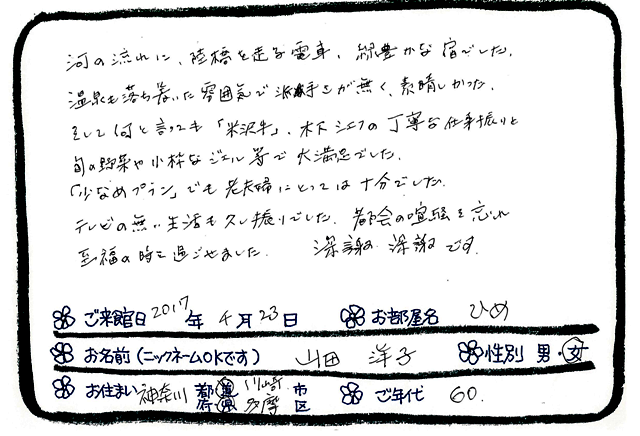 河の流れに、陸橋を走る電車、緑豊かな宿でした。
温泉も落ち着いた雰囲気で派手さが無く、素晴しかった。
そして何と言っても「米沢牛」、木下シェフの丁寧な仕事振りと
旬の野菜や小粋なジュレ等で大満足でした。
「少なめプラン」でも老夫婦にとっては十分でした。
テレビの無い生活も久し振りでした。都会の喧騒を忘れ
至福の時を過ごせました。 深謝 深謝です。
ご来館日 2017年 4月 23日 お部屋名 ひめ
お名前(ニックネームOKです) 山田 洋子 性別 男・女
お住まい 神奈川 都道府県 川崎 多摩 市区 ご年代 60.